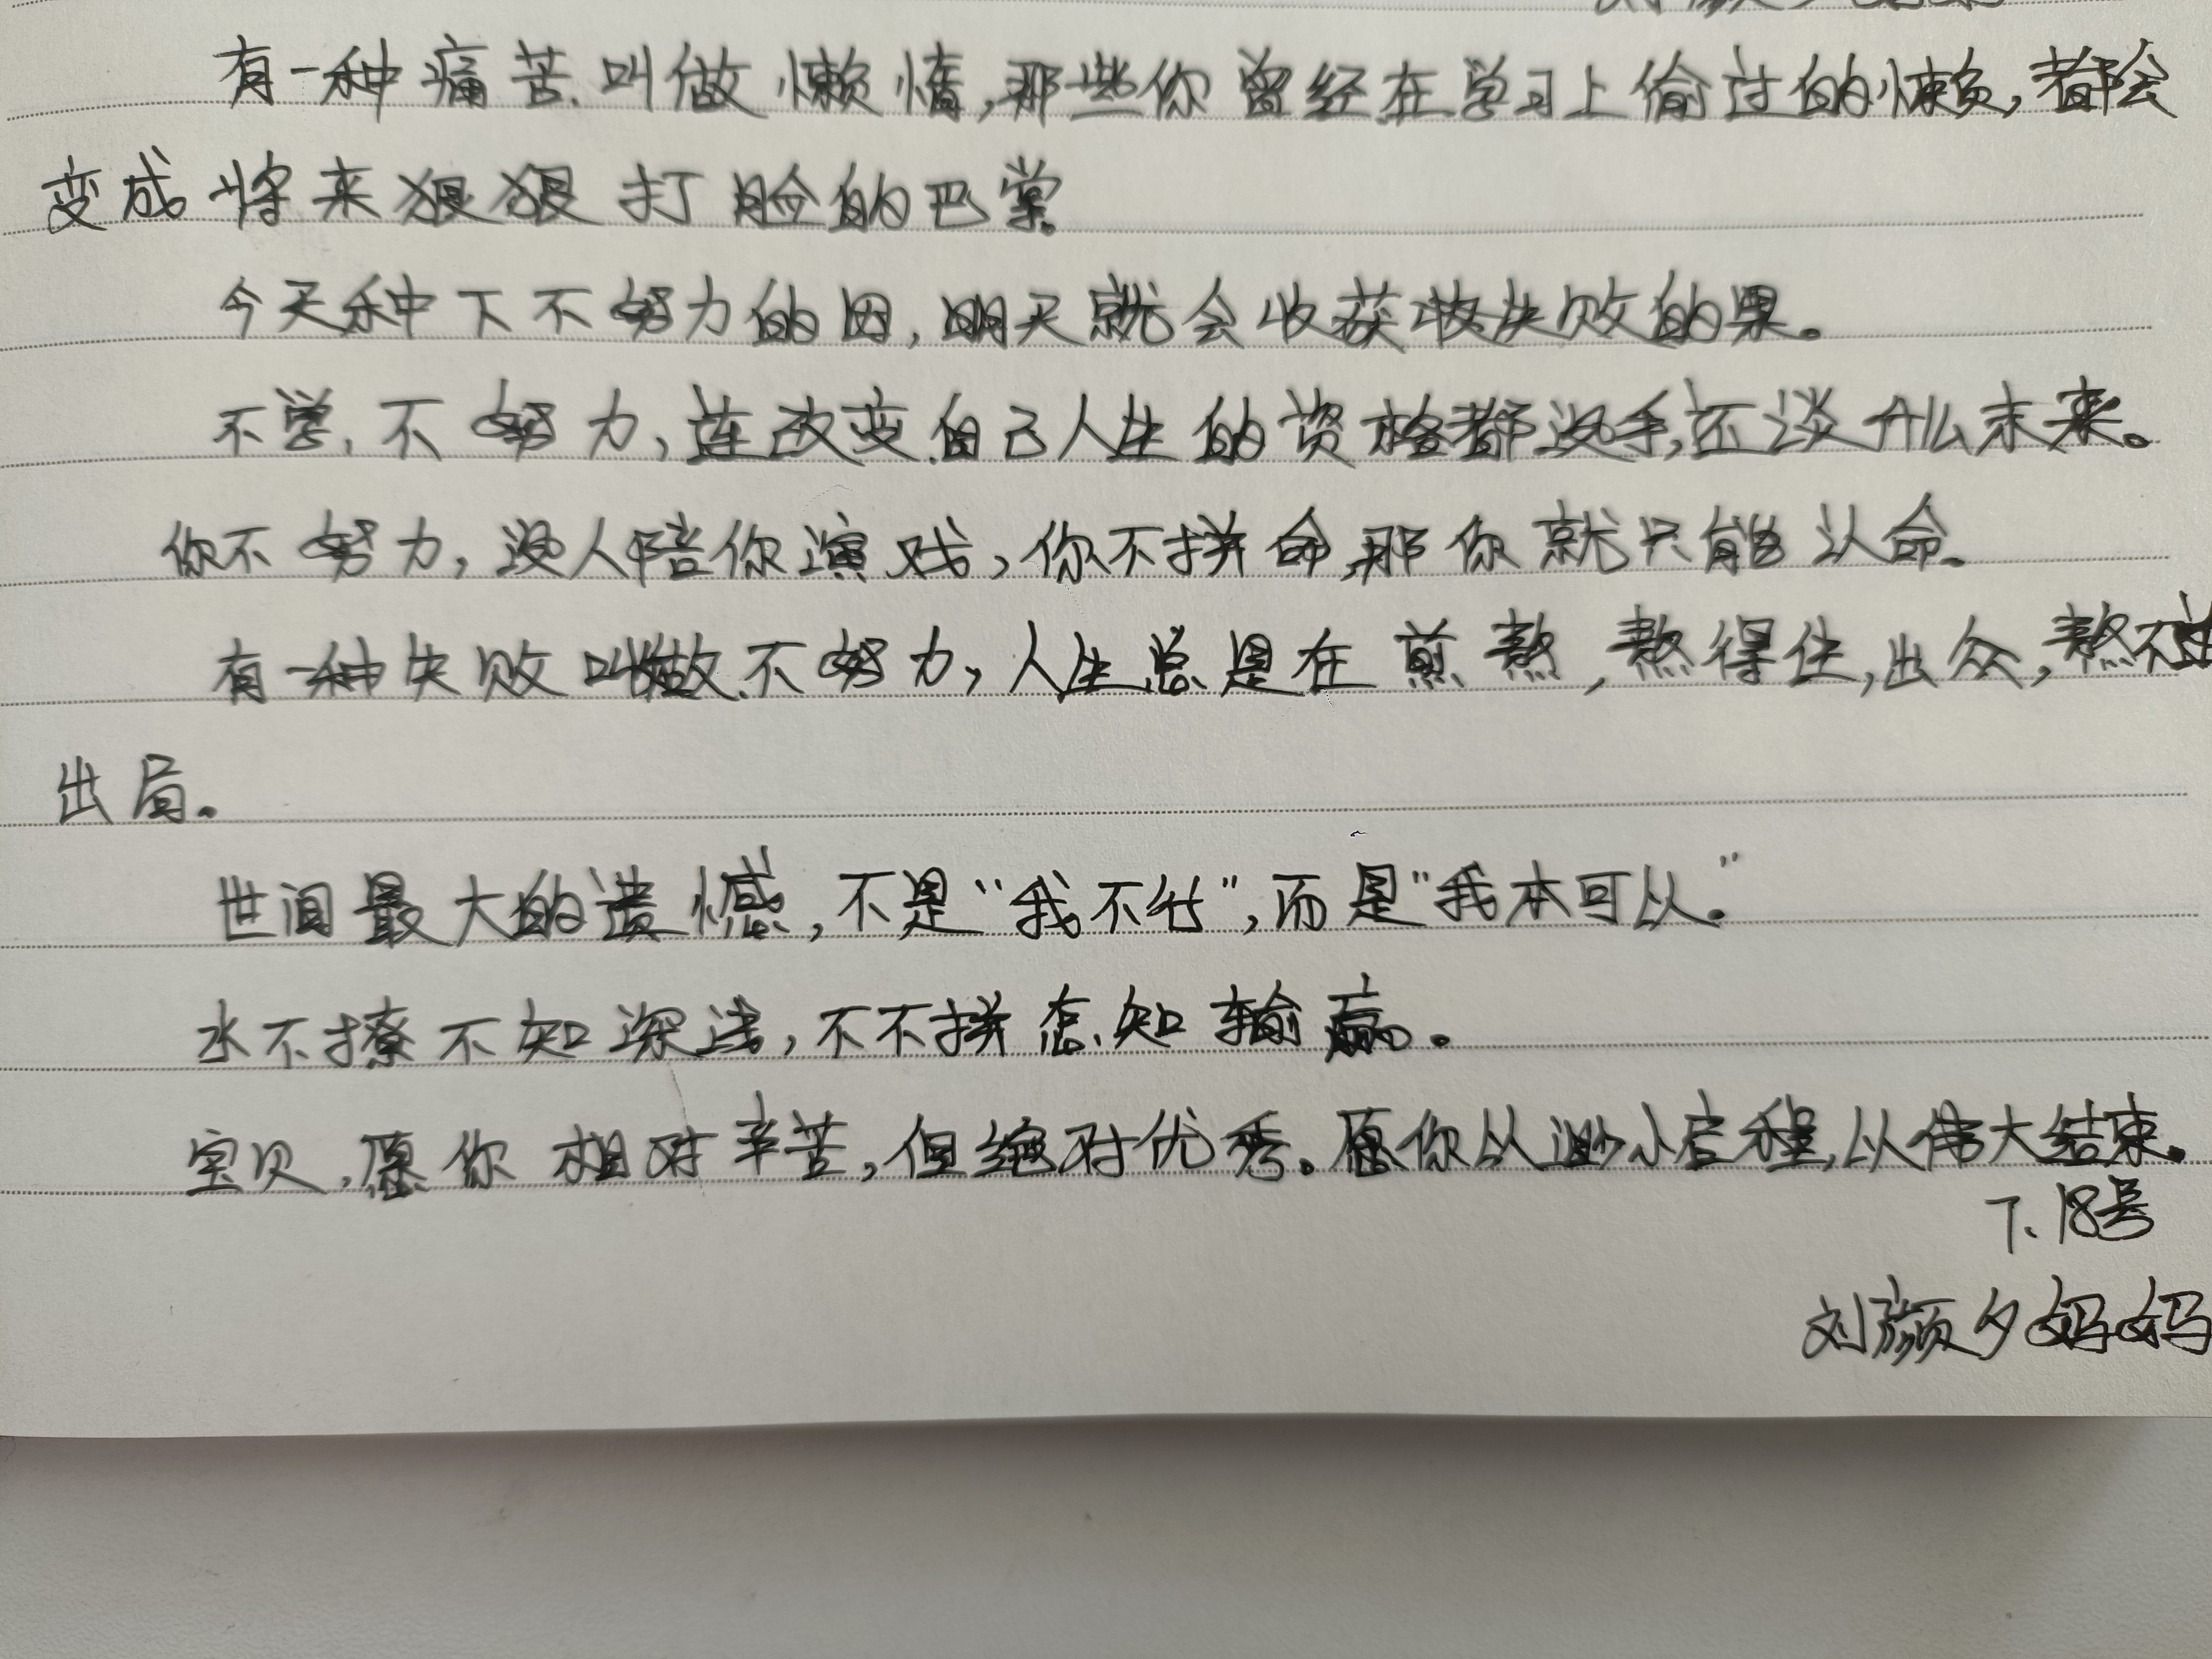 有一种痛苦叫做懒惰,那些你曾经在学习上偷过的懒,都会
变成将来狠狠打脸的巴掌.
今天种下不努力的因,明天就会收获失败的果。
不学,不努力,连改变自己人生的资格都没手,还谈什么未来。
你不努力,没人陪你演戏,你不拼命,那你就只能认命.
有一种失败叫做不努力,人生总是在煎熬,熬得住,出众,熬不住
出局。
世间最大的遗憾,不是“我不行”,而是“我本可以.”
水不撩不知深浅,不不拼怎知输赢。
宝贝,愿你相对辛苦,但绝对优秀。愿你以渺小启程,以伟大结束。
7、18号
刘颜夕妈妈